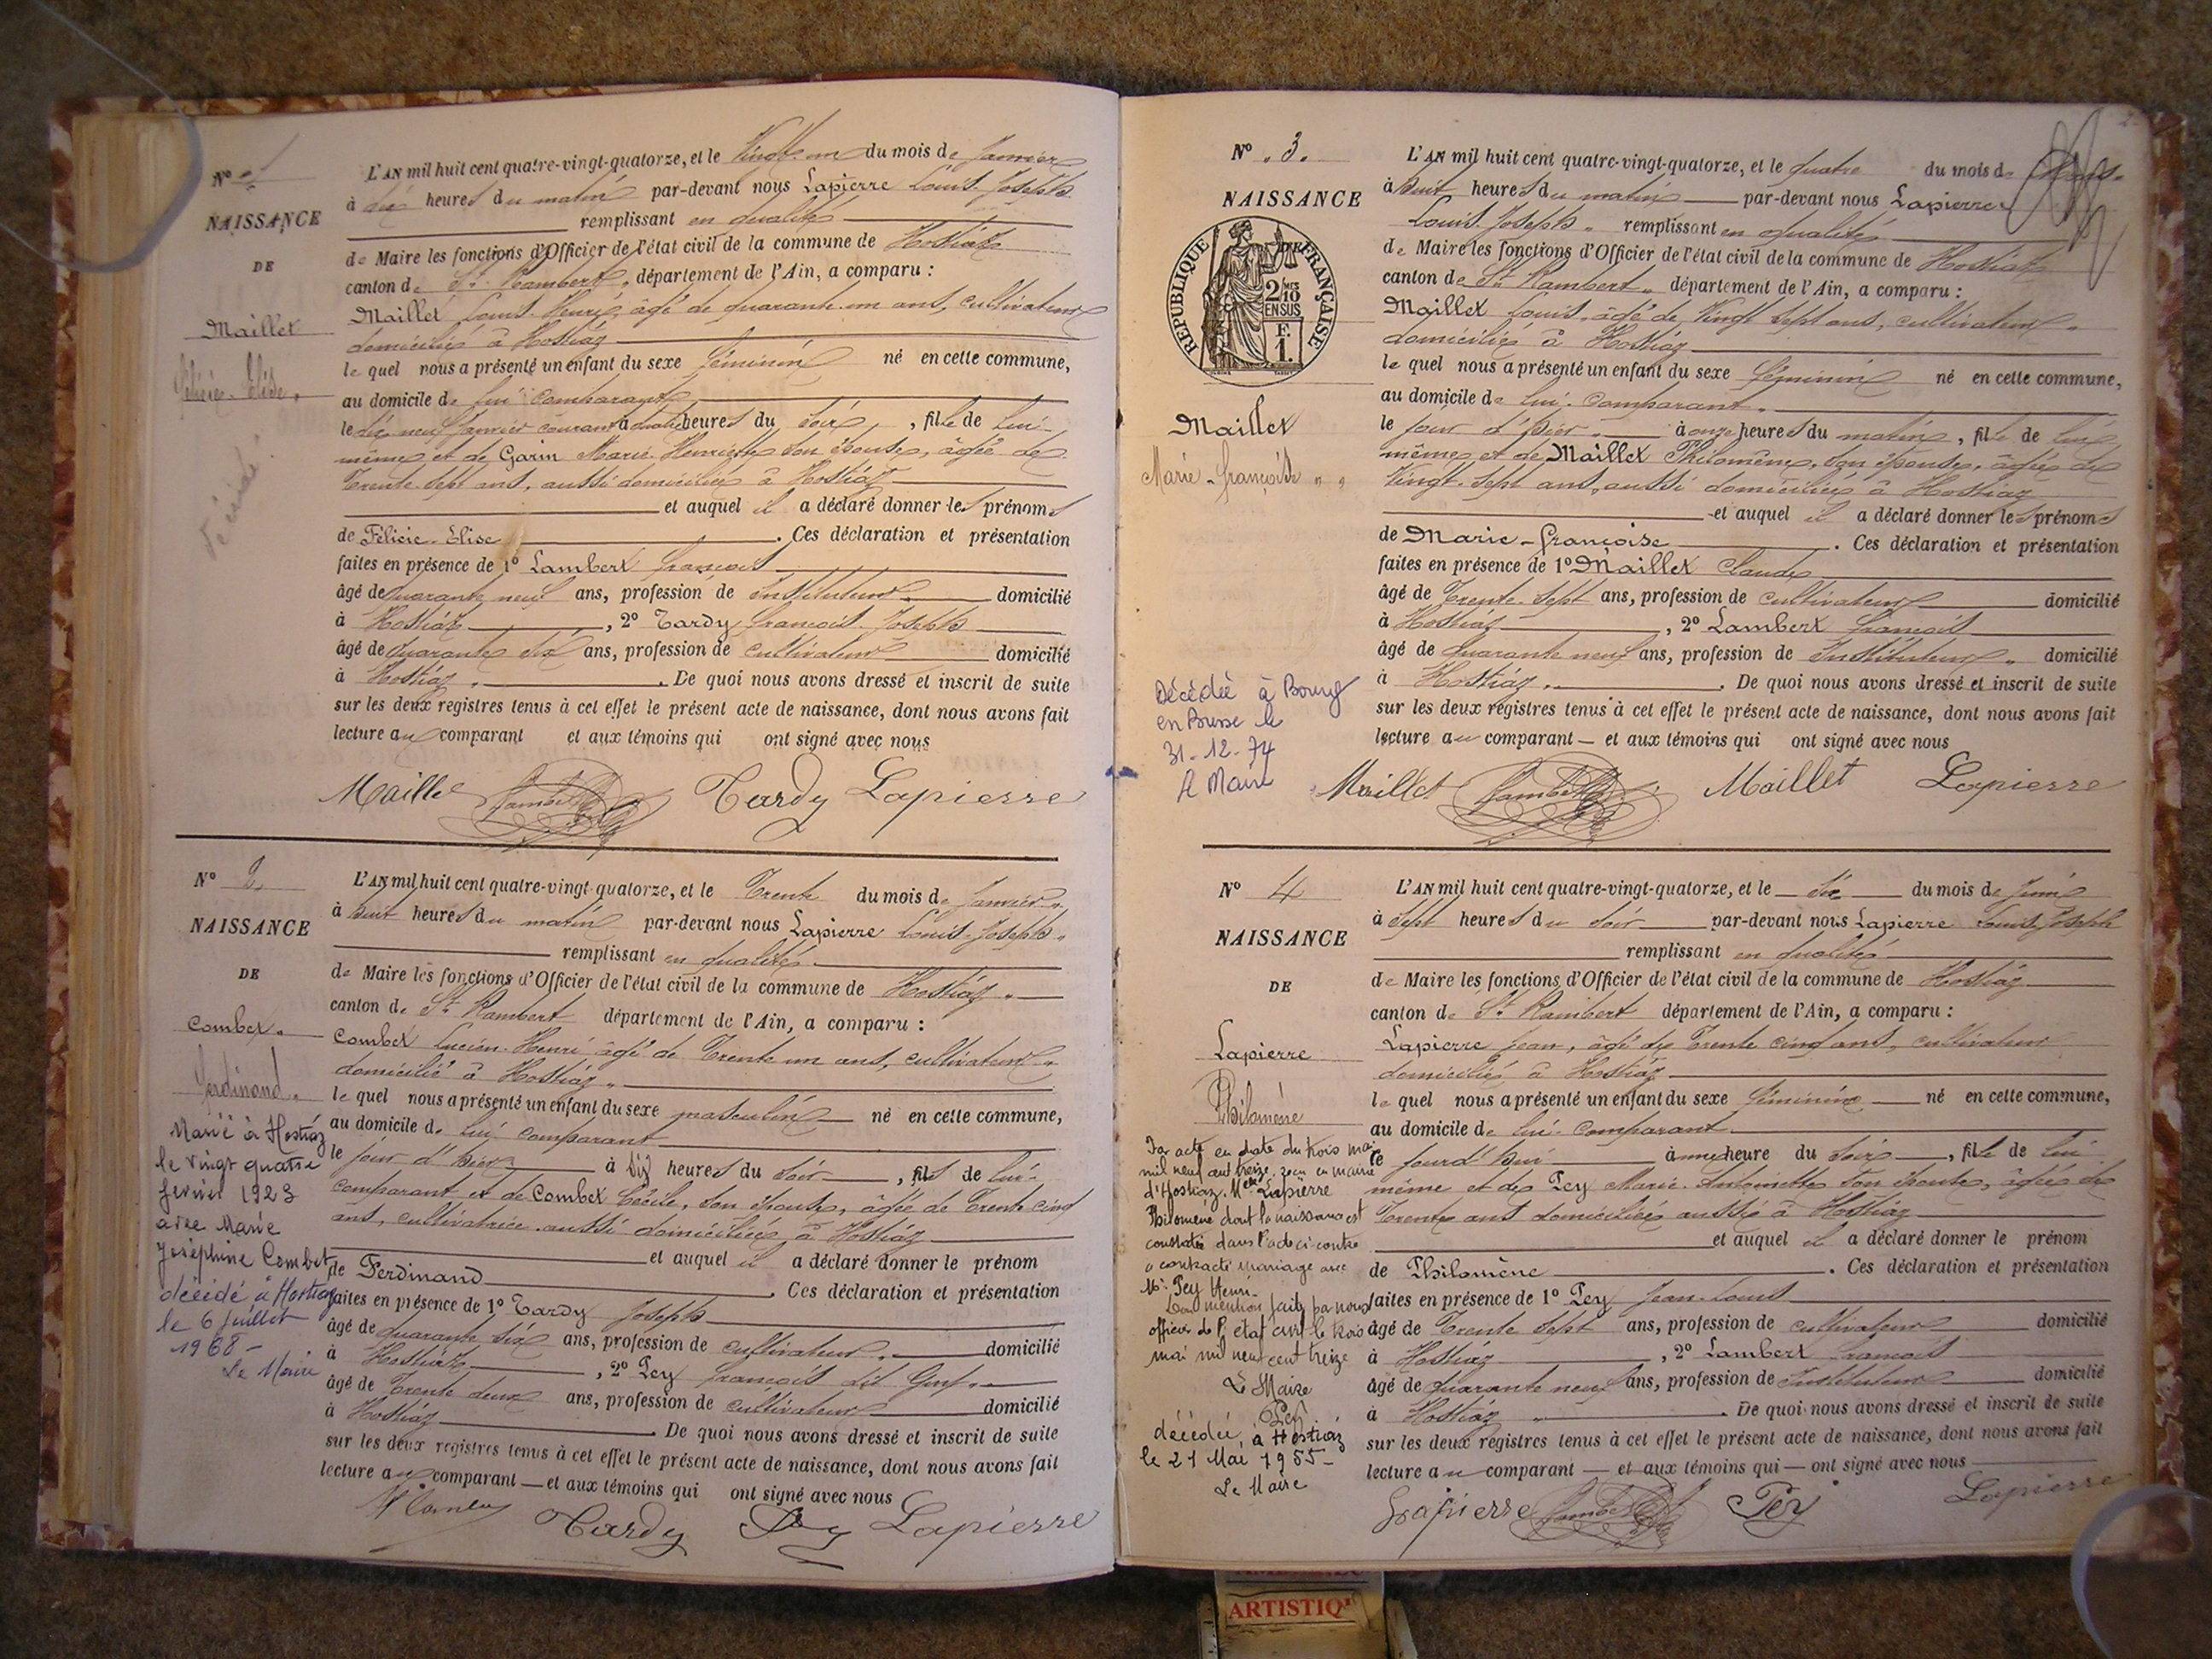 N° 1
NAISSANCE
DE
Maillet
Félicie-Elise
Décédée
L'AN mil huit cent quatre-vingt-quatorze, et le Vingt-un du mois de Janvier
à dix heures du matin par-devant nous Lapierre Louis-Joseph
remplissant en qualité
de Maire les fonctions d'Officier de l'état civil de la commune de Hostiaz
canton de St Rambert, département de l'Ain, a comparu :
Maillet Louis-Henri, âgé de quarante-un ans, cultivateur
domicilié à Hostiaz
lequel nous a présenté un enfant du sexe féminin né en cette commune,
au domicile de lui comparant
le dix-neuf Janvier courant à quatre heures du soir, fille de lui-
même et de Garin Marie-Henriette son épouse, âgée de
Trente-Sept ans, aussi domiciliée à Hostiaz
et auquel il a déclaré donner les prénoms
de Félicie-Elise. Ces déclaration et présentation
faites en présence de 1° Lambert François
âgé de quarante neuf ans, profession de Instituteur domicilié
à Hostiaz, 2° Tardy François-Joseph
âgé de quarante six ans, profession de cultivateur domicilié
à Hostiaz. De quoi nous avons dressé et inscrit de suite
sur les deux registres tenus à cet effet le présent acte de naissance, dont nous avons fait
lecture au comparant et aux témoins qui ont signé avec nous
Maillet Lambert Tardy Lapierre
N° 2
NAISSANCE
DE
Combet
Ferdinand
Marié à Hostiaz
le vingt quatre
février 1923
avec Marie
Joséphine Combet
décédé à Hostiaz
le 6 juillet
1968 -
Le Maire
L'AN mil huit cent quatre-vingt-quatorze, et le Trente du mois de Janvier
à huit heures du matin par-devant nous Lapierre Louis-Joseph
remplissant en qualité
de Maire les fonctions d'Officier de l'état civil de la commune de Hostiaz
canton de St Rambert département de l'Ain, a comparu :
Combet Lucien-Henri, âgé de Trente un ans, cultivateur
domicilié à Hostiaz
lequel nous a présenté un enfant du sexe masculin né en cette commune,
au domicile de lui comparant
le jour d'hier à dix heures du soir, fils de lui-
comparant et de Combet Cécile, son épouse, âgée de Trente cinq
ans, cultivatrice aussi domiciliée à Hostiaz
et auquel il a déclaré donner le prénom
de Ferdinand. Ces déclaration et présentation
faites en présence de 1° Tardy Joseph
âgé de quarante six ans, profession de cultivateur domicilié
à Hostiaz, 2° Pey François dit
âgé de Trente deux ans, profession de cultivateur domicilié
à Hostiaz. De quoi nous avons dressé et inscrit de suite
sur les deux registres tenus à cet effet le présent acte de naissance, dont nous avons fait
lecture au comparant — et aux témoins qui ont signé avec nous
Tardy Pey Lapierre
N° 3.
NAISSANCE
RÉPUBLIQUE FRANÇAISE
2 MES
10
EN SUS
F.
1.
Maillet
Marie-Françoise
Décédée à Bourg
en Bresse le
31-12-74
Le Maire
L'AN mil huit cent quatre-vingt-quatorze, et le quatre du mois de Mars
à huit heures du matin par-devant nous Lapierre
Louis-Joseph remplissant en qualité
de Maire les fonctions d'Officier de l'état civil de la commune de Hostiaz
canton de St Rambert département de l'Ain, a comparu :
Maillet Louis, âgé de Vingt Sept ans, cultivateur
domicilié à Hostiaz
lequel nous a présenté un enfant du sexe féminin né en cette commune,
au domicile de lui comparant
le jour d'hier à onze heures du matin, fille de lui
même et de Maillet Philomène, son épouse, âgée de
Vingt-Sept ans, aussi domiciliée à Hostiaz
et auquel il a déclaré donner les prénoms
de Marie-Françoise. Ces déclaration et présentation
faites en présence de 1° Maillet Claude
âgé de Trente-Sept ans, profession de cultivateur domicilié
à Hostiaz, 2° Lambert François
âgé de quarante neuf ans, profession de Instituteur domicilié
à Hostiaz. De quoi nous avons dressé et inscrit de suite
sur les deux registres tenus à cet effet le présent acte de naissance, dont nous avons fait
lecture au comparant — et aux témoins qui ont signé avec nous
Maillet Lambert Maillet Lapierre
N° 4
NAISSANCE
DE
Lapierre
Philomène
Par acte en date du trois mai
mil neuf cent treize, reçu en mairie
d'Hostiaz, Melle Lapierre
Philomène dont la naissance est
constatée dans l'acte ci-contre
a contracté mariage avec
Mr Pey Henri.
Dont mention faite par nous
officier de l'état civil le trois
mai mil neuf cent treize
Le Maire
Pey
décédée à Hostiaz
le 21 Mai 1955-
Le Maire
L'AN mil huit cent quatre-vingt-quatorze, et le Six du mois de Juin
à Sept heures du soir par-devant nous Lapierre Louis-Joseph
remplissant en qualité
de Maire les fonctions d'Officier de l'état civil de la commune de Hostiaz
canton de St Rambert département de l'Ain, a comparu :
Lapierre Jean, âgé de Trente cinq ans, cultivateur
domicilié à Hostiaz
lequel nous a présenté un enfant du sexe féminin né en cette commune,
au domicile de lui comparant
le jourd'hui à une heure du soir, fille de lui
même et de Pey Marie-Antoinette son épouse, âgée de
Trente ans domiciliée aussi à Hostiaz
et auquel il a déclaré donner le prénom
de Philomène. Ces déclaration et présentation
faites en présence de 1° Pey Jean-Louis
âgé de Trente Sept ans, profession de cultivateur domicilié
à Hostiaz, 2° Lambert François
âgé de quarante neuf ans, profession de Instituteur domicilié
à Hostiaz. De quoi nous avons dressé et inscrit de suite
sur les deux registres tenus à cet effet le présent acte de naissance, dont nous avons fait
lecture au comparant — et aux témoins qui — ont signé avec nous
Lapierre Lambert Pey Lapierre
ARTISTIQ